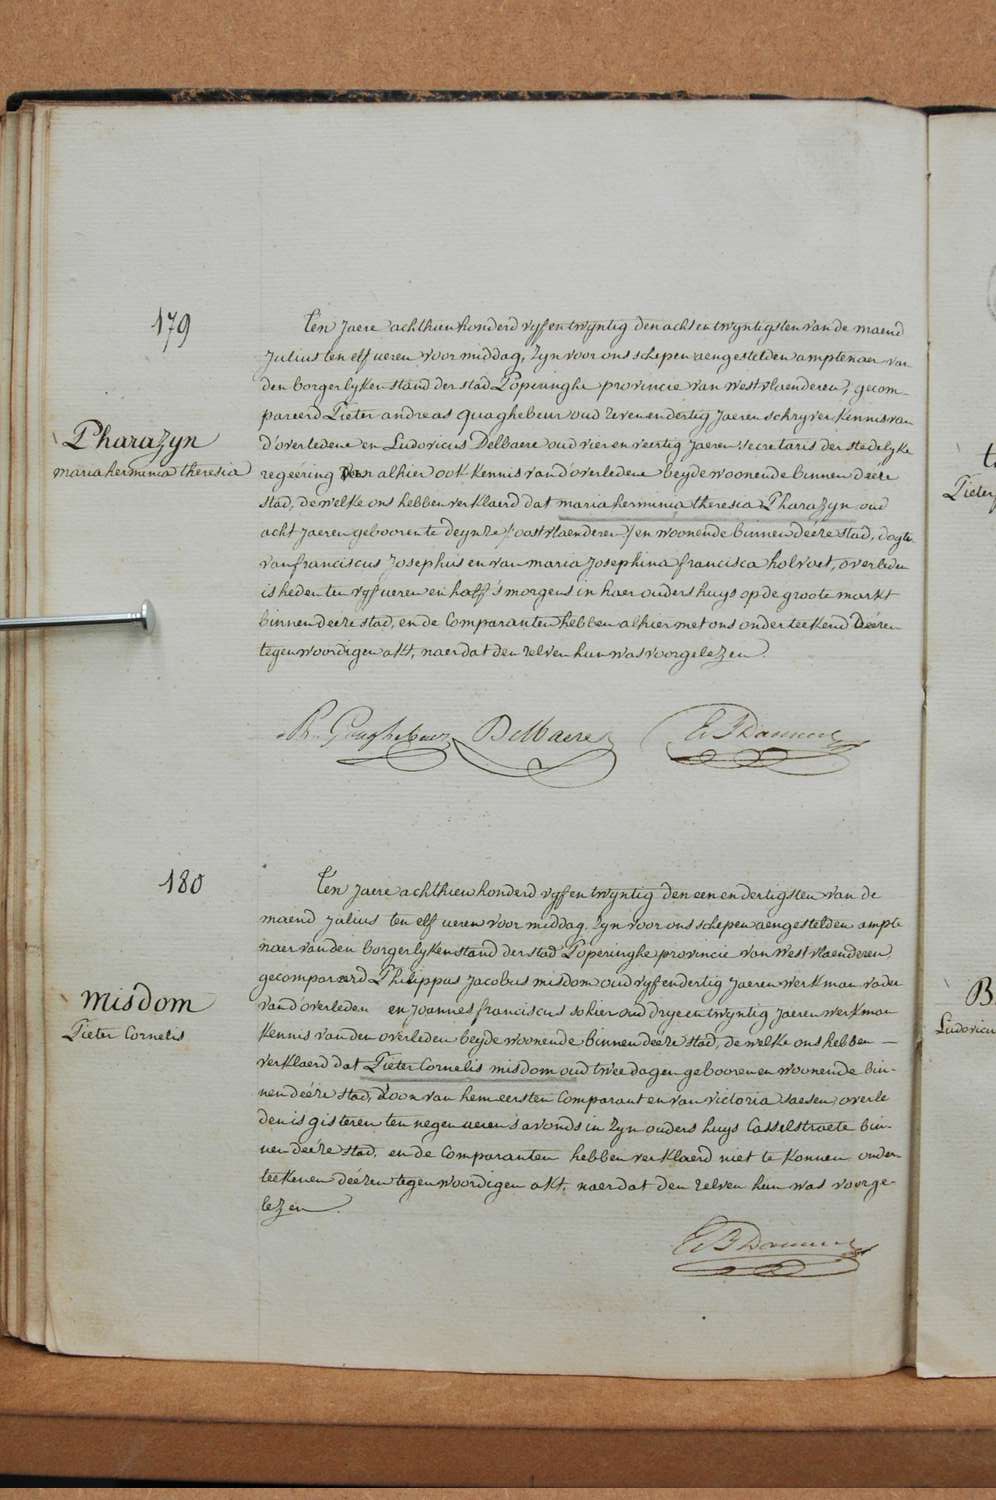 179
Ten Jaere achthien honderd vyf en twyntig den acht en twyntigsten van de maend
Julius ten elf ueren voormiddag, zyn voor ons schepen aengestelden amptenaer van
den borgerlyken stand der stad Poperinghe provincie van westvlaenderen, gecom-
pareerd Pieter andreas quaghebeur oud zeven en dertig Jaeren schryver kennis van
Pharazyn
d'overledene en Ludovicus Delbaere oud vier en veertig Jaeren secretaris der stedelyke
maria herminia theresia
regeéring alhier ook kennis van d'overledene beyde woonende binnen deéze
stad, de welke ons hebben verklaerd dat maria herminia theresia Pharazyn oud
acht Jaeren gebooren te deynze /oostvlaenderen/ en woonende binnen deéze stad, dogter
van franciscus Josephus en van maria Josephina francisca holvoet, overleden
is heden ten vyf ueren en half s'morgens in haer ouders huys op de groote markt
binnen deeze stad, en de Comparanten hebben alhier met ons onderteekend deézen
tegenwoordigen akt, naer dat den zelven hun was voorgelezen.
Quaghebeur Delbaere
180
Ten Jaere achthien honderd vyf en twyntig den een en dertigsten van de
maend Julius ten elf ueren voormiddag, zyn voor ons schepen aengestelden ampte
naer van den borgerlyken stand der stad Poperinghe provincie van Westvlaenderen,
gecompareerd Philippus Jacobus misdom oud vyf en dertig Jaeren werkman vader
misdom
van d'overleden en Joannes franciscus sohier oud drye en twyntig Jaeren werkman
Pieter Cornelis
kennis van den overleden beyde woonende binnen deéze stad, de welke ons hebben —
verklaerd dat Pieter Cornelis misdom oud twee dagen gebooren en woonende bin-
nen deéze stad, zoon van hem eersten Comparant en van victoria saesen overle
den is gisteren ten negen ueren s'avonds in zyn ouders huys Casselstraete bin-
nen deéze stad, en de Comparanten hebben verklaerd niet te konnen onder-
teekenen deézen tegenwoordigen akt, naer dat den zelven hun was voorge-
lezen.
Pieter
B
Ludovicu